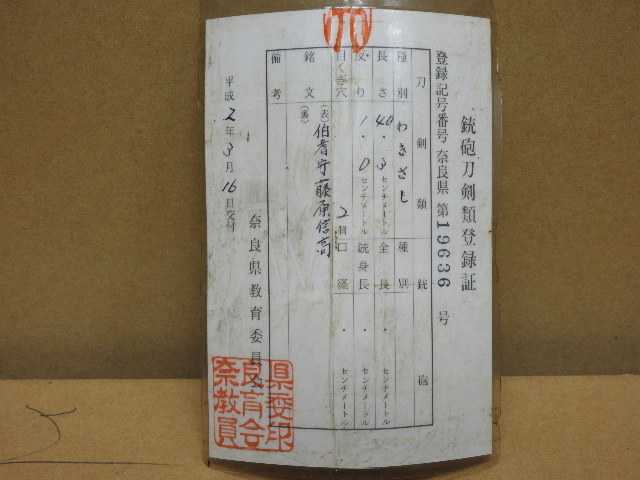 銃砲刀剣類登録証
登録記号番号 奈良県 第19636号
刀剣類
銃砲
種別 わきざし
種別
長さ 40.3センチメートル
全長 . センチメートル
反り 1.0センチメートル
銃身長 . センチメートル
目くぎ穴 2個
口径 . センチメートル
銘文
(表)伯耆守藤原信高
(裏)
備考
平成2年3月16日交付
奈良県教育委員会
奈良県教育委員会印